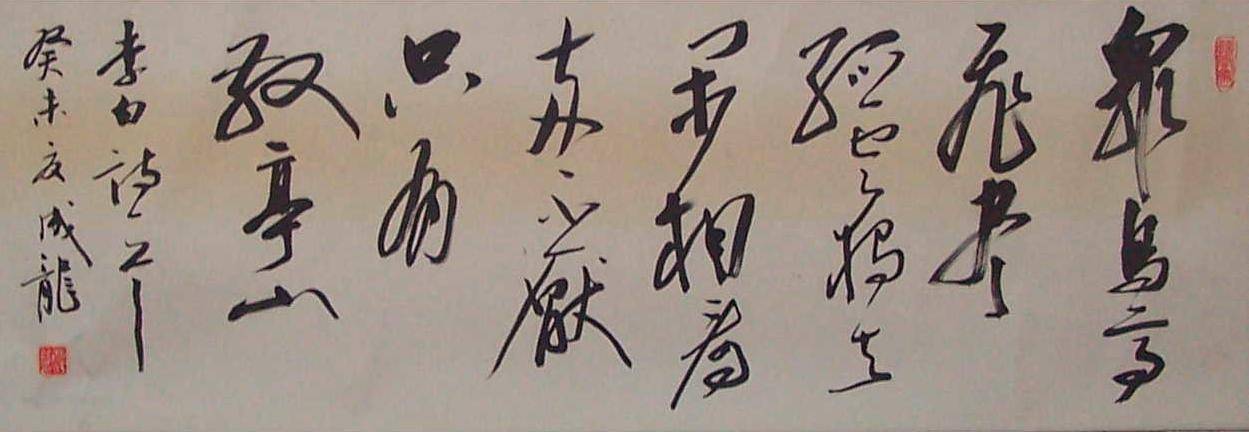 衆鳥高
飛盡
孤雲獨去
閑相看
兩不厭
只有
敬亭山
李白詩
癸未夏成龍